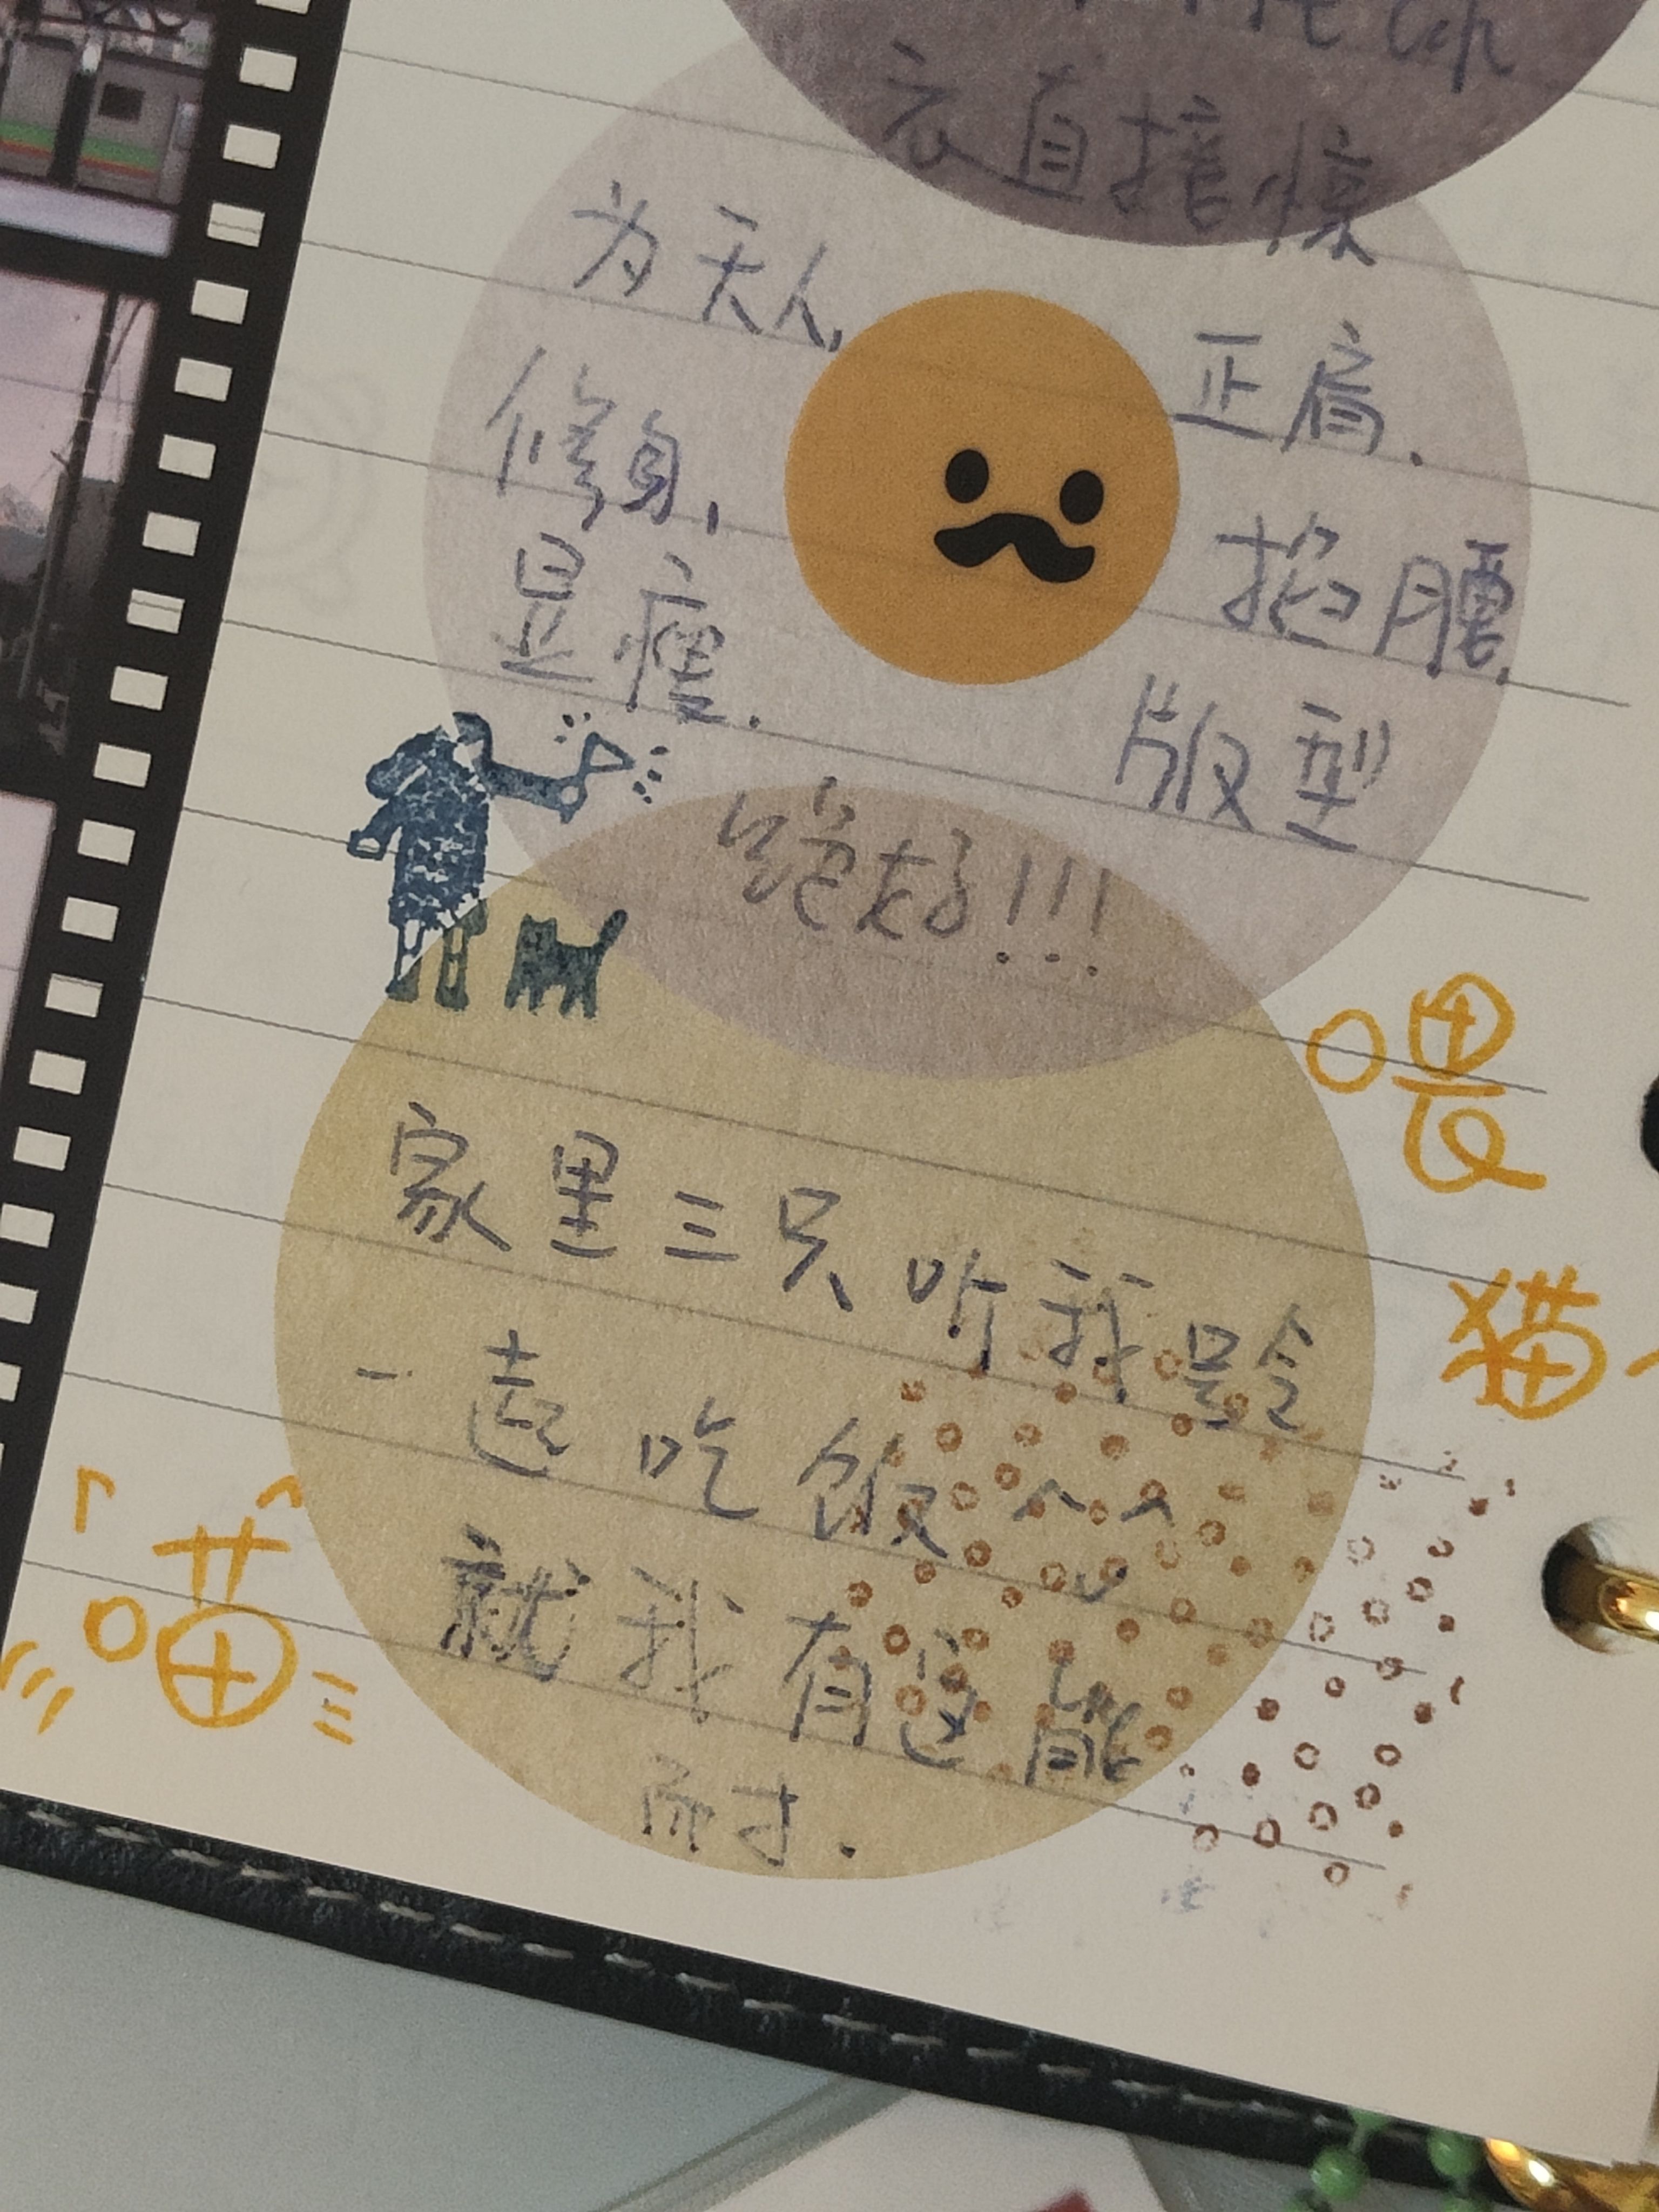 衣直接惊
为天人,
正肩.
修身,
掐腰,
显瘦.
版型
绝好!!!
喂
猫~
家里三只听我号令
一起吃饭^^
就我有这能
耐才.
喵